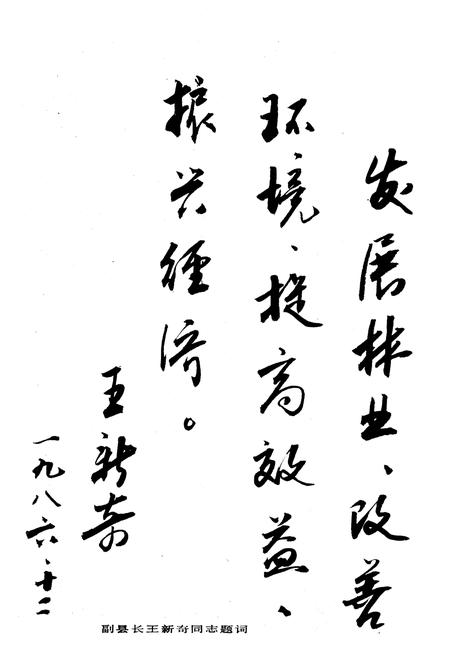 发展林业、改善
环境、提高效益、
振兴经济。
王新奇
一九八六、十二
副县长王新奇同志题词